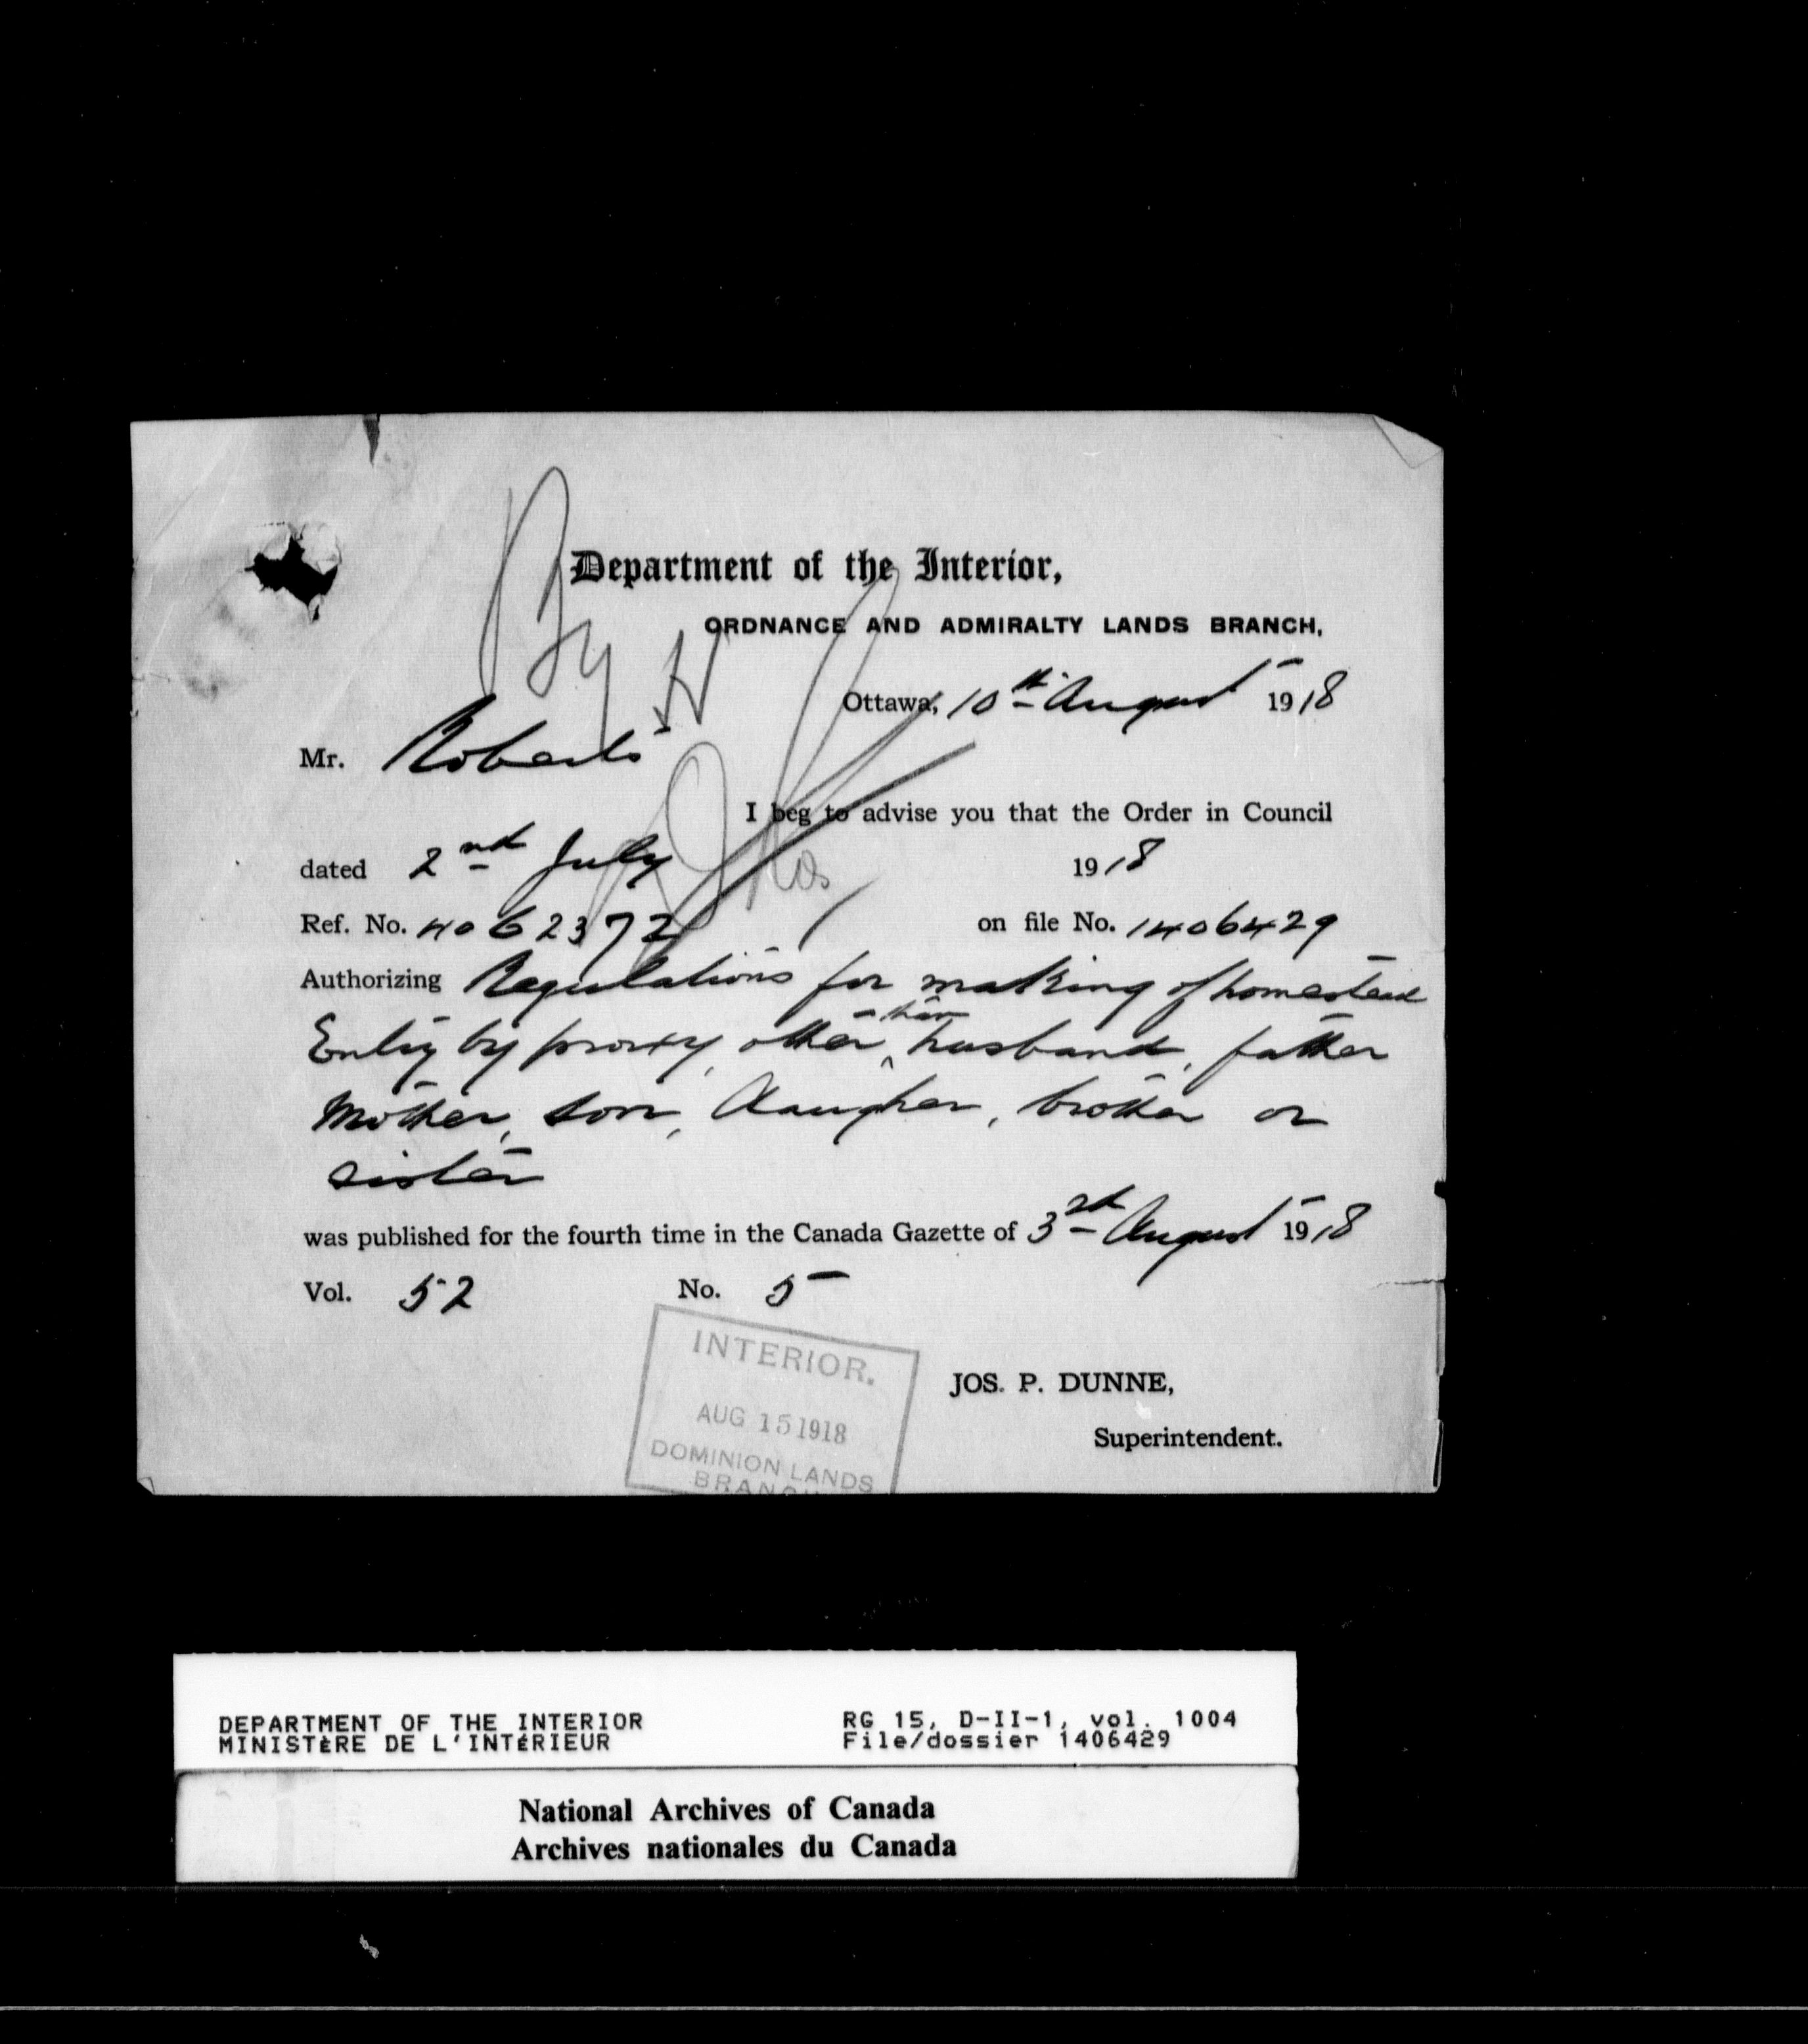 Department of the Interior,
ORDNANCE AND ADMIRALTY LANDS BRANCH,
Ottawa, 10th August 1918
Mr. Roberts
I beg to advise you that the Order in Council
dated 2nd July 1918
Ref. No. 4062372 on file No. 1406429
Authorizing Regulations for making of homestead
Entry by proxy, other than husband, father
Mother, son, daugher, brother or
sister
was published for the fourth time in the Canada Gazette of 3rd August 1918
Vol. 52 No. 5
INTERIOR.
AUG 15 1918
DOMINION LANDS
BRANCH
JOS. P. DUNNE,
Superintendent.
DEPARTMENT OF THE INTERIOR RG 15, D-II-1, vol. 1004
MINISTÈRE DE L'INTÉRIEUR File/dossier 1406429
National Archives of Canada
Archives nationales du Canada